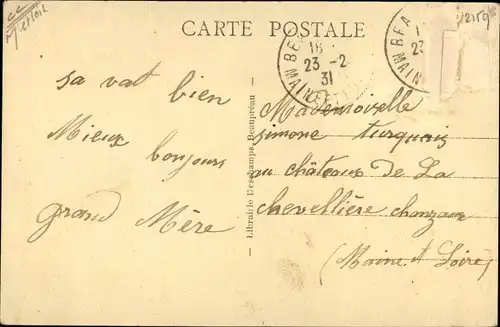 CARTE POSTALE
BEA
16
23-2
31
MAIN
BEA
23
MAINE
sa vat bien
Mieux bonjours
grand Mère
Librairie Deschamps, Beaupréau
Mademoiselle
simone turquais
au châteaux De La
chevellière chanzeaux
(Maine et Loire)